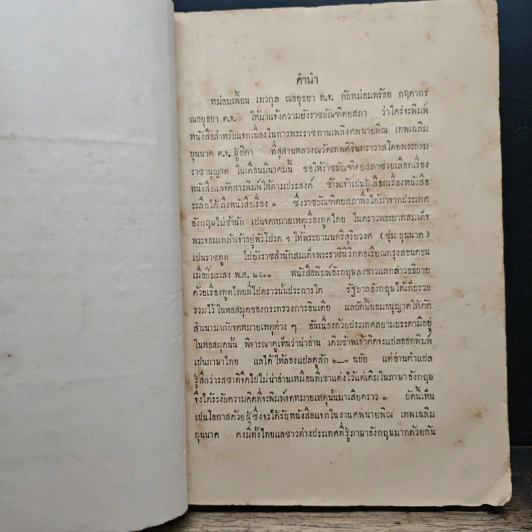 คำนำ
หม่อมเพี้ยน เทวกุล ณอยุธยา ท.จ. กับหม่อมพร้อย กฤดากร
ณอยุธยา ต.จ. ให้มาแจ้งความยังราชบัณฑิตยสภา ว่าใคร่จะพิมพ์
หนังสือสำหรับแจกเนื่องในการพระราชทานเพลิงศพนายพิณ เทพเฉลิม
บุนนาค ต.จ. ผู้บิดา ที่สุสานหลวงณวัดเทพศิรินทราวาสโดยพระบรม
ราชานุญาต ในเดือนมีนาคมนี้ ขอให้ราชบัณฑิตยสภาช่วยเลือกเรื่อง
หนังสือแลจัดการพิมพ์ให้ตามประสงค์ ข้าพเจ้าเป็นผู้เลือกเรื่องหนังสือ
ระลึกได้ถึงหนังสือเรื่อง ๑ ซึ่งราชบัณฑิตยสภาพึ่งได้มาจากประเทศ
อังกฤษไม่ช้านัก เป็นจดหมายเหตุเรื่องทูตไทย ในคราวพระบาทสมเด็จ
พระจอมเกล้าเจ้าอยู่หัวโปรด ฯ ให้พระยามนตรีสุริยวงศ (ชุ่ม บุนนาค)
เป็นราชทูต ไปยังราชสำนักสมเด็จพระราชินีวิกตอเรียณกรุงลอนดอน
เมื่อปีมะเสง พ.ศ. ๒๔๐๐ หนังสือพิมพ์อังกฤษลงข่าวแลกล่าวอธิบาย
ด้วยเรื่องทูตไทยที่ไปคราวนั้นประการใด รัฐบาลอังกฤษได้เก็บรวบ
รวมไว้ในหอสมุดของกระทรวงการอินเดีย แลบัดนี้ยอมอนุญาตให้คัด
สำเนามากับจดหมายเหตุต่าง ๆ อันเนื่องด้วยประเทศสยามบรรดามีอยู่
ในหอสมุดนั้น พิจารณาดูเห็นว่าน่าอ่าน เดิมข้าพเจ้าคิดจะแปลออกพิมพ์
เป็นภาษาไทย แลได้ให้ลองแปลดูสัก ๒—๓ ฉบับ แต่อ่านคำแปล
รู้สึกว่ารสชาติจืดไปไม่น่าอ่านเหมือนที่เขาแต่งไว้แต่เดิมในภาษาอังกฤษ
จึงได้ระงับความคิดที่จะพิมพ์จดหมายเหตุนั้นมาเสียคราว ๑ บัดนี้เห็น
เป็นโอกาสด้วยผู้ซึ่งจะได้รับหนังสือแจกในงานศพนายพิณ เทพเฉลิม
บุนนาค คงมีทั้งไทยแลชาวต่างประเทศที่รู้ภาษาอังกฤษมากด้วยกัน